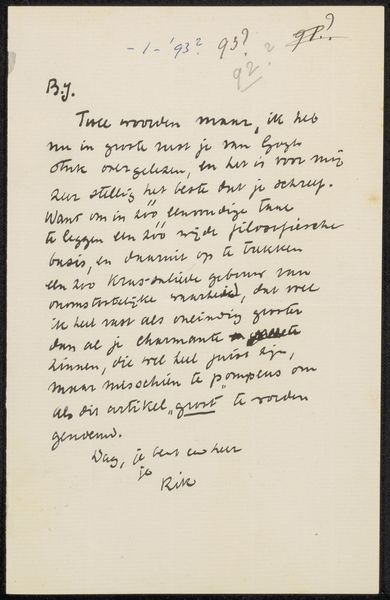 -1-'93? 93? 91?
92?
B.J.
Twee woorden maar, ik heb
nu in groote rust je van Gogh
stuk overgelezen, en het is voor mij
zeer stellig het beste dat je schreef.
Want om in zóó eenvoudige taal
te leggen een zóó wijde filosofische
basis, en daaruit op te trekken
een zóó gebouw van
onomstootelijke waarheid, dat voel
ik heel vast als oneindig grooter
dan al je charmante
zinnen, die wel heel juist zijn,
maar misschien te pompeus om
als dit artikel „groot" te worden
genoemd.
Dag, je bent een heer
je
Rik